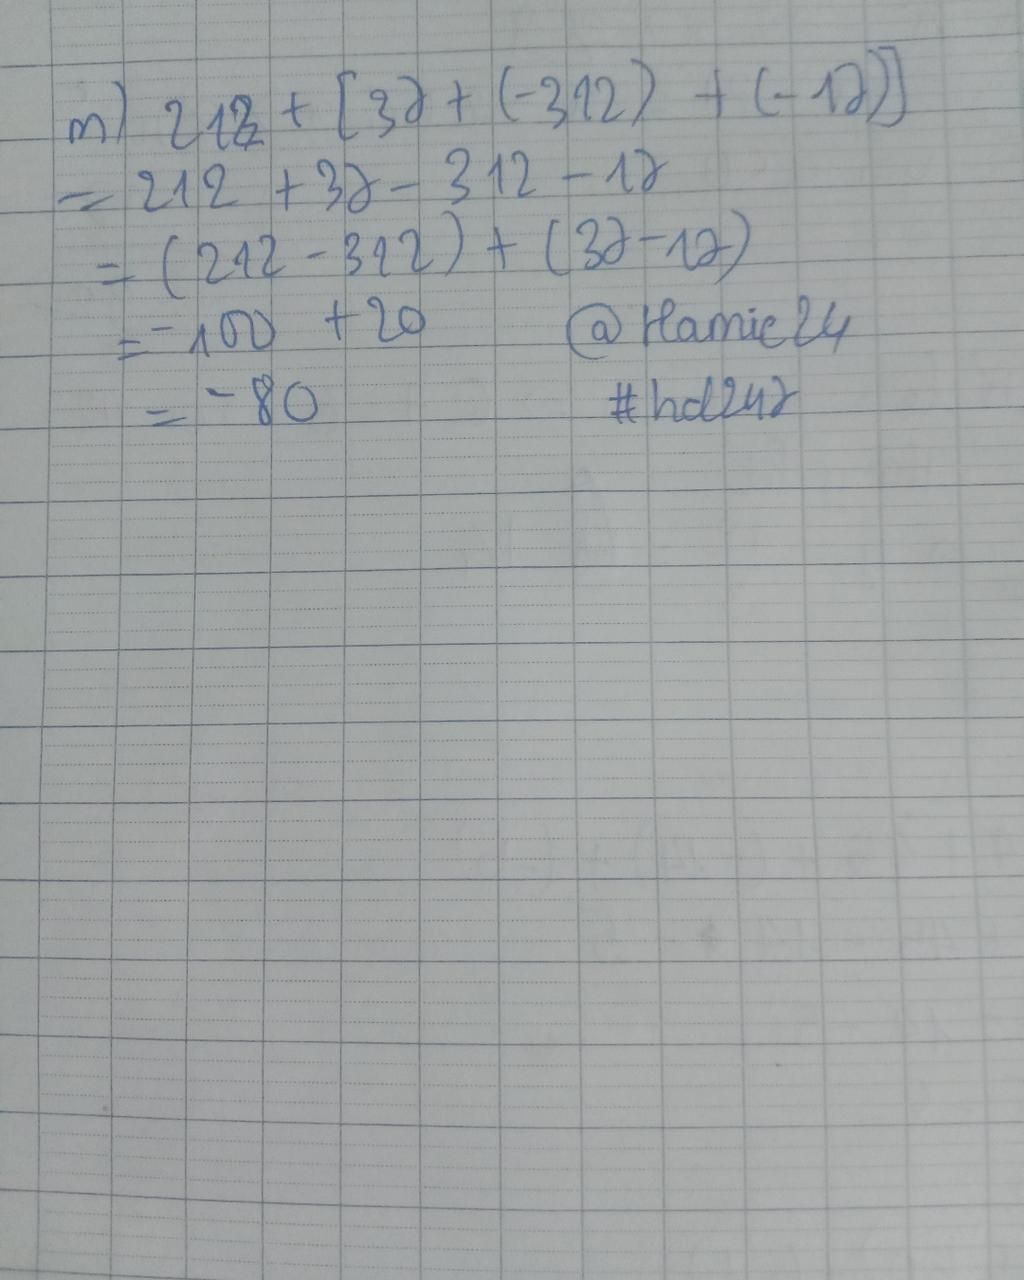 m) 212 + [37 + (-312) + (-17)]
= 212 + 37 - 312 - 17
= (212 - 312) + (37 - 17)
= -100 + 20 @Hamie24
= -80 #hd247